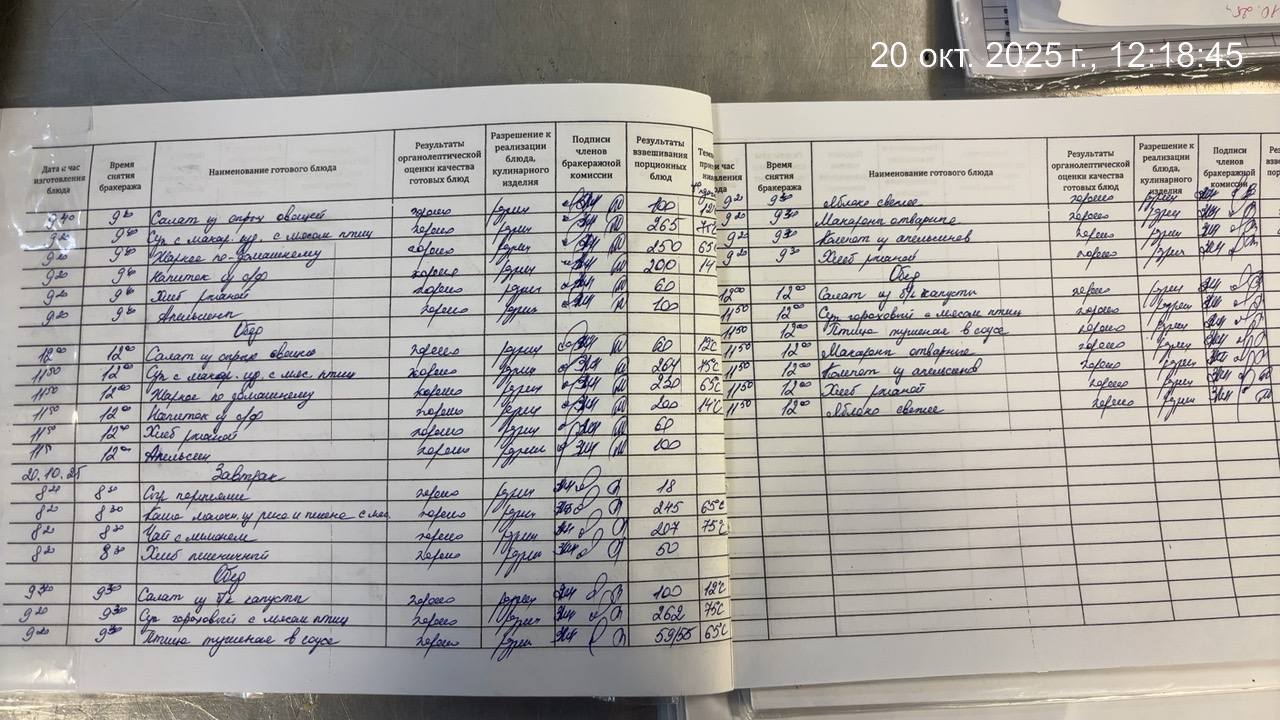 20 окт. 2025 г., 12:18:45
Дата к час изготовления блюда
Время снятия бракеража
Наименование готового блюда
Результаты органолептической оценки качества готовых блюд
Разрешение к реализации блюда, кулинарного изделия
Подписи членов бракеражной комиссии
Результаты взвешивания порционных блюд
9 40 9 30 Салат из овощей хорошо 100
9 20 9 30 Суп с макар. изд. с мясом птиц хорошо 265
9 20 9 30 Жаркое по домашнему хорошо 250 65
9 20 9 30 Напиток из хорошо 200 14
9 20 9 30 Хлеб ржаной хорошо 60
9 20 9 30 Апельсин хорошо 100
Обед
12 00 12 00 Салат из овощей хорошо 60 12С
11 50 12 00 Суп с макар. изд. с мяс. птиц хорошо 264 75С
11 50 12 00 Жаркое по домашнему хорошо 230 65С
11 50 12 00 Напиток из хорошо 200 14С
11 50 12 00 Хлеб ржаной хорошо 60
11 5 12 00 Апельсин хорошо 100
20.10.25 Завтрак
8 20 8 30 Сыр порциями хорошо 18
8 20 8 30 Каша молочн. из риса и пшена с мас. хорошо 245 65С
8 20 8 30 Чай с лимоном хорошо 207 75С
8 20 8 30 Хлеб пшеничный хорошо 50
Обед
9 30 9 30 Салат из б/к капусты хорошо 100 12С
9 20 9 30 Суп гороховый с мясом птиц хорошо 262 75С
9 20 9 30 Птица тушеная в соусе хорошо 59/55 65С
Время снятия бракеража
Наименование готового блюда
Результаты органолептической оценки качества готовых блюд
Разрешение к реализации блюда, кулинарного изделия
Подписи членов бракеражной комиссии
9 20 9 30 Яблоко свежее хорошо
9 20 9 30 Макароны отварные хорошо
9 20 9 30 Компот из апельсинов хорошо
9 20 9 30 Хлеб ржаной хорошо
Обед
12 00 12 00 Салат из б/к капусты хорошо
11 50 12 00 Суп гороховый с мясом птиц хорошо
11 50 12 00 Птица тушеная в соусе хорошо
11 50 12 00 Макароны отварные хорошо
11 50 12 00 Компот из апельсинов хорошо
11 50 12 00 Хлеб ржаной хорошо
11 50 12 00 Яблоко свежее хорошо